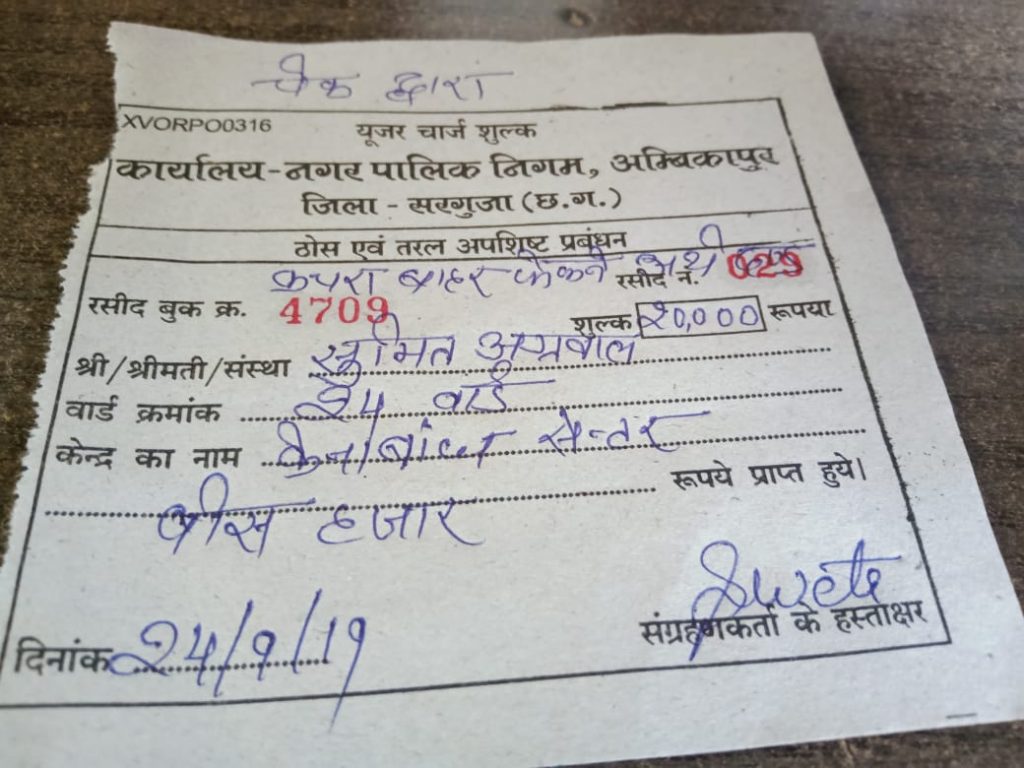 चेक द्वारा
XVORPO0316 यूजर चार्ज शुल्क
कार्यालय-नगर पालिक निगम, अम्बिकापुर
जिला - सरगुजा (छ.ग.)
ठोस एवं तरल अपशिष्ट प्रबंधन
कचरा बाहर फेकने
रसीद बुक क्र. 4709 रसीद नं. 029
शुल्क 20,000 रूपया
श्री/श्रीमती/संस्था अग्रवाल
वार्ड क्रमांक 24 वार्ड
केन्द्र का नाम सेन्टर
रूपये प्राप्त हुये।
बीस हजार
Swete
दिनांक 24/9/19 संग्रहणकर्ता के हस्ताक्षर